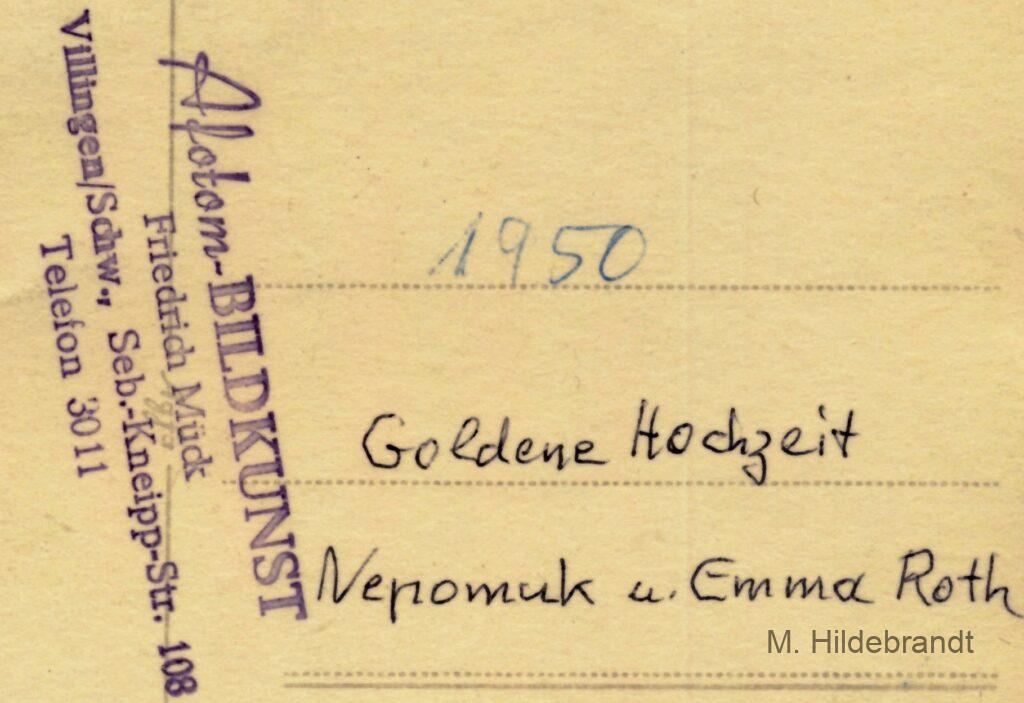 Afotom-BILDKUNST
Friedrich Mück
Villingen/Schw., Seb.-Kneipp-Str. 108
Telefon 3011
1950
Goldene Hochzeit
Nepomuk u. Emma Roth
M. Hildebrandt